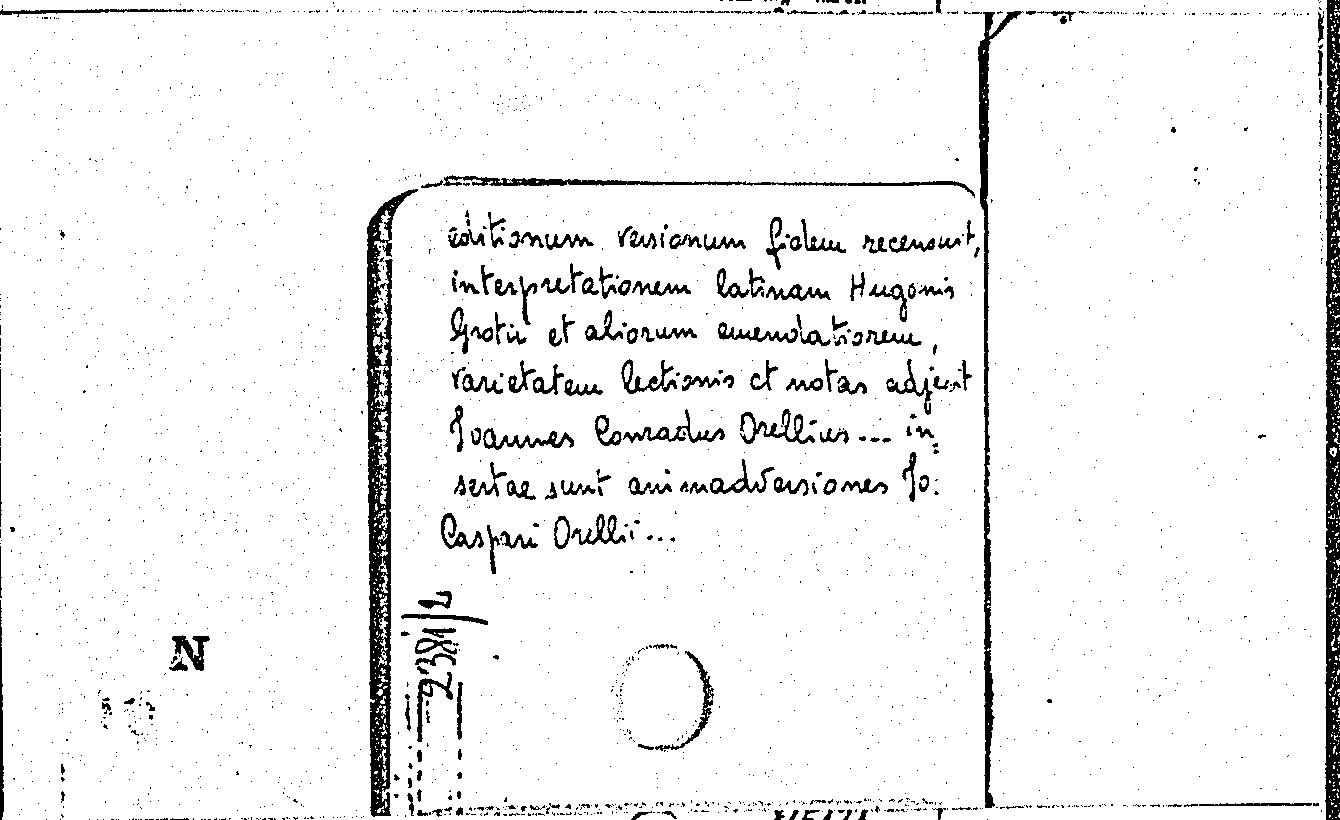 editionum versionum fidem recensuit,
interpretationem latinam Hugonis
Grotii et aliorum emendatiorem,
varietatem lectionis et notas adjecit
Joannes Conradus Orellius... in,
sertae sunt animadversiones Jo.
Caspari Orellii...
N